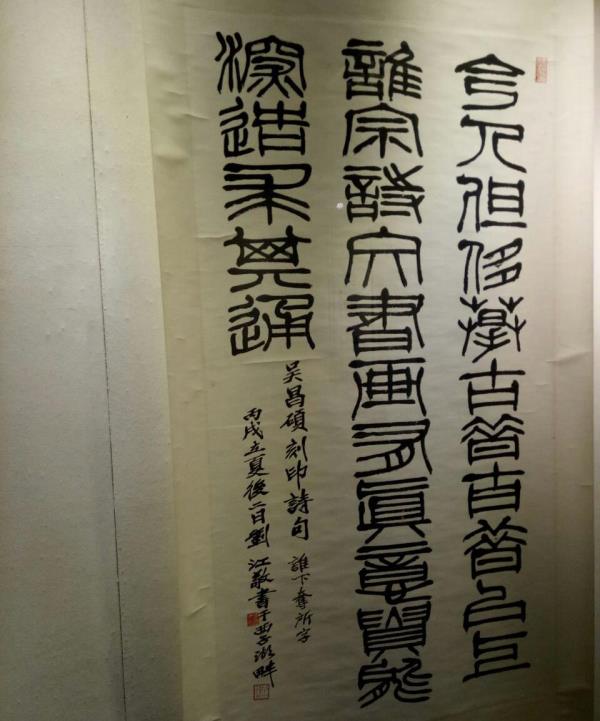 今人但侈摹古昔古昔以上
誰宗詩文書畫有真意貴能
深造求其通
吴昌碩刻印詩句 誰下奪所字
丙戌立夏後二日劉江敬書于西子湖畔